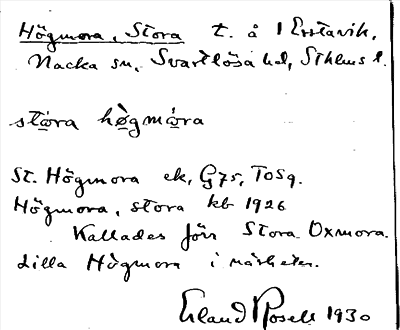 Högmora, Stora t. å 1 Erstavik,
Nacka sn, Svartlösa hd, Sthlms l.
stóra hògmóra
St. Högmora ek, G75, ToS9.
Högmora, stora kb 1926
Kallades förr Stora Oxmora.
Lilla Högmora i närheten.
Erland Rosell 1930